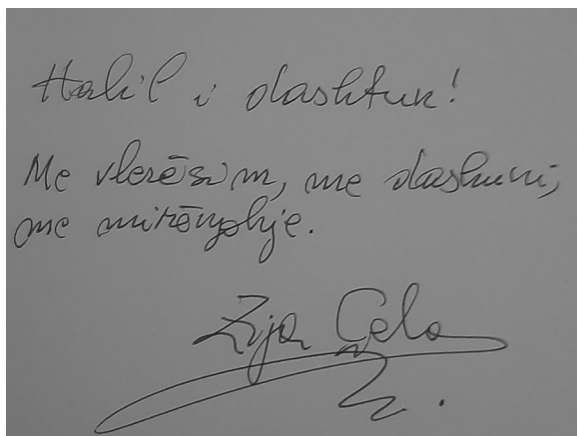 Halil i dashtun!
Me vlerësim, me dashuri,
me mirënjohje.
Zija Çela